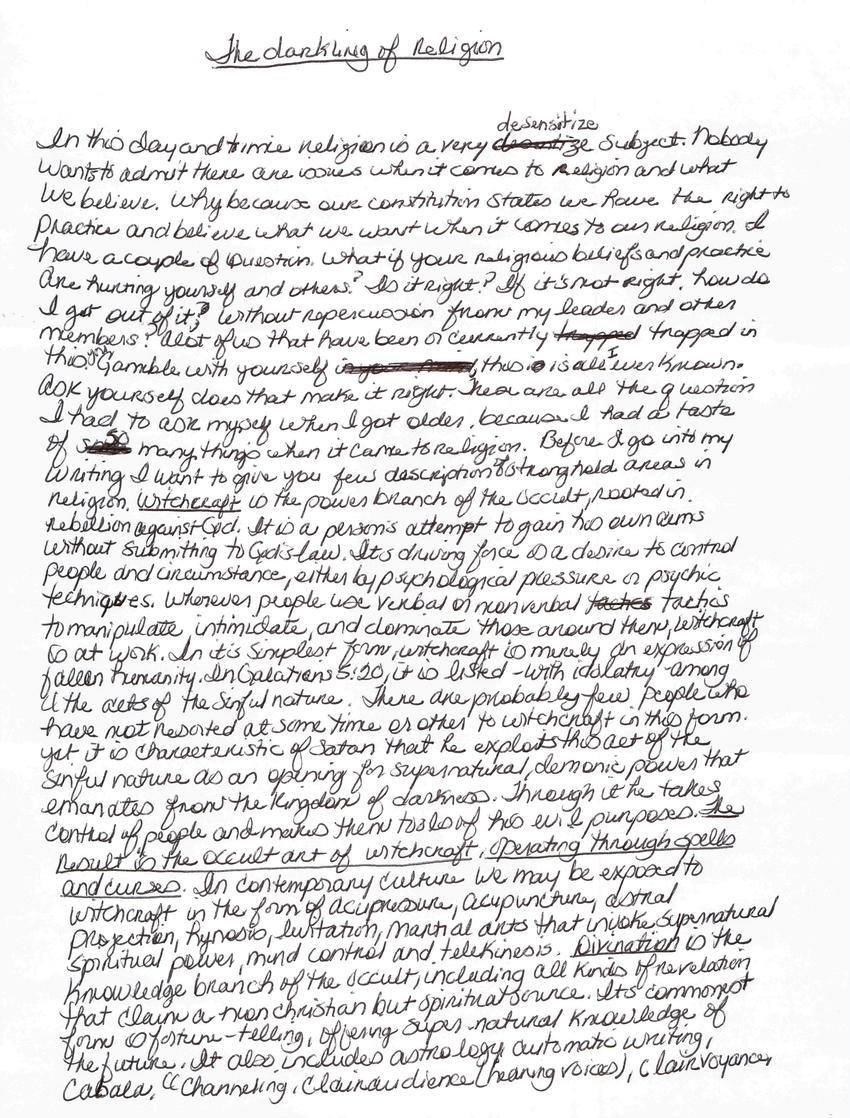 The darkling of Religion
desensitize
In this day and time religion is a very Subject. Nobody
wants to admit there are issues when it comes to religion and what
we believe. Why because our constitution States we have the right to
practice and believe what we want when it comes to our religion. I
have a couple of question. What if your religious beliefs and practice
are hurting yourself and others? Is it right? If it's not right, how do
I get out of it? Without repercussion from my leader and other
members? So, Alot of us that have been or currently trapped in
this Gamble with yourself, this is all I ever known.
ask yourself does that make it right. These are all the question
I had to ask myself when I got older, because I had a taste
of so many things when it came to religion. Before I go into my
writing I want to give you few description of stronghold areas in
religion. Witchcraft is the power branch of the occult, rooted in
rebellion against God. It is a person's attempt to gain his own aims
without submitting to God's law. It's driving force is a desire to control
people and circumstance, either by psychological pressure or psychic
techniques. Wherever people use verbal or nonverbal tactics
to manipulate, intimidate, and dominate those around them, witchcraft
is at work. In it's simplest form, witchcraft is merely an expression of
fallen humanity. In Galations 5:20, it is listed-with idolatry-among
the acts of the sinful nature. There are probably few people who
have not resorted at some time or other to witchcraft in this form.
yet it is characteristic of Satan that he exploits this act of the
sinful nature as an opening for supernatural, demonic power that
emanates from the kingdom of darkness. Through it he takes
control of people and makes them tools of his evil purposes. The
Result is the occult art of witchcraft, operating through spells
and curses. In contemporary culture we may be exposed to
witchcraft in the form of acupressure, acupuncture, astral
projection, hynosis, levitation, martial arts that invoke supernatural
spiritual power, mind control and telekinesis. Divination is the
knowledge branch of the occult, including all kinds of revelation
that claim a non christian but spiritual source. It's commonest
form is fortune-telling, offering super-natural knowledge of
the future. It also includes astrology, automatic writing,
Cabala, Channeling, Clairaudience (hearing voices), Clairvoyance,